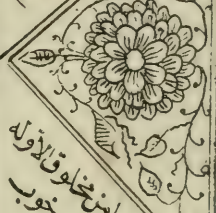 من مخلوق الاوله
خوب